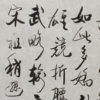 如此多嬌
雄競折腰
武略輸
宋祖稍遜